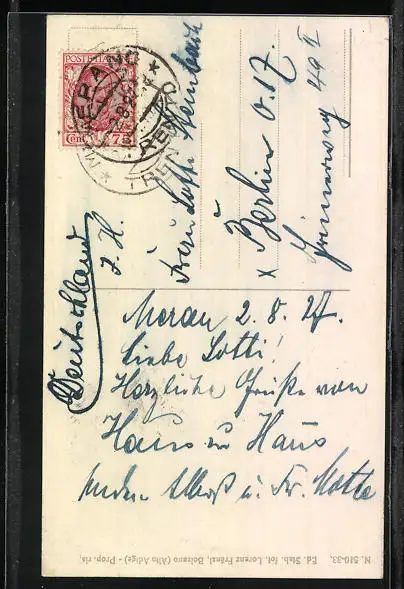 POSTE ITALIANE
Cent. 75
MERANO
TRENTO
Deutschland
z. H.
Frau Lotte
Berlin O. 17.
x
49 I
Meran 2. 8. 27.
Liebe Lotti!
Herzliche Grüße von
Haus zu Haus
Albert u. Fr.
N. 510-33. Ed. Stab. fot. Lorenz Fränzl, Bolzano (Alto Adige) - Prop. ris.